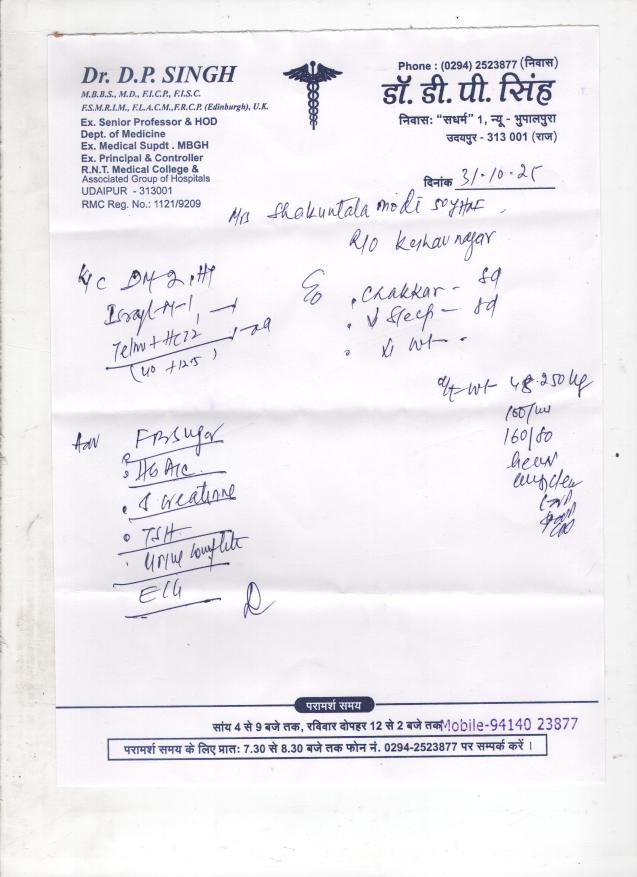 Dr. D.P. SINGH
M.B.B.S., M.D., F.I.C.P., F.I.S.C.
F.S.M.R.I.M., F.L.A.C.M.,F.R.C.P. (Edinburgh), U.K.
Ex. Senior Professor & HOD
Dept. of Medicine
Ex. Medical Supdt . MBGH
Ex. Principal & Controller
R.N.T. Medical College &
Associated Group of Hospitals
UDAIPUR - 313001
RMC Reg. No.: 1121/9209
Phone : (0294) 2523877 (निवास)
डॉ. डी. पी. सिंह
निवासः "सधर्म" 1, न्यू - भुपालपुरा
उदयपुर - 313 001 (राज)
दिनांक 31-10-25
Mrs Shakuntala Modi 50y
R/O Keshavnagar
K/C DM-2, HT
M-1
Telmi + HCTZ
(40 + 12.5)
Chakkar - 8d
↓ Sleep - 8d
↓ Wt
Wt 48.250kg
100/m
160/80
Adv
FBSugar
HbA1c
S Creatinine
TSH
Urine Complete
ECG
परामर्श समय
सांय 4 से 9 बजे तक, रविवार दोपहर 12 से 2 बजे तक Mobile-94140 23877
परामर्श समय के लिए प्रातः 7.30 से 8.30 बजे तक फोन नं. 0294-2523877 पर सम्पर्क करें ।